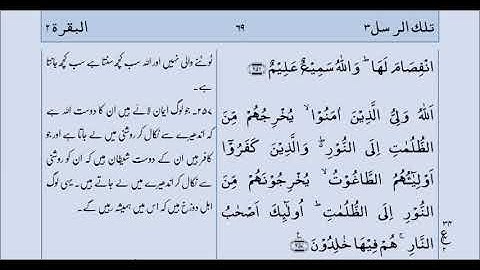 تلك الرسل ٣
٦٩
البقرة ٢
انْفِصَامَ لَهَا ؕ وَاللّٰهُ سَمِيْعٌ عَلِيْمٌ ۝۲۵۶
اَللّٰهُ وَلِيُّ الَّذِيْنَ اٰمَنُوْا ۙ يُخْرِجُهُمْ مِّنَ
الظُّلُمٰتِ اِلَى النُّوْرِ ؕ وَالَّذِيْنَ كَفَرُوْۤا
اَوْلِيٰٓـُٔهُمُ الطَّاغُوْتُ ۙ يُخْرِجُوْنَهُمْ مِّنَ
النُّوْرِ اِلَى الظُّلُمٰتِ ؕ اُولٰٓئِكَ اَصْحٰبُ
النَّارِ ۚ هُمْ فِيْهَا خٰلِدُوْنَ ۝۲۵۷
ٹوٹنے والی نہیں اور اللہ سب کچھ سنتا ہے سب کچھ جانتا
ہے۔
۲۵۷۔ جو لوگ ایمان لائے ہیں ان کا دوست اللہ ہے
کہ اندھیرے سے نکال کر روشنی میں لے جاتا ہے اور جو
کافر ہیں ان کے دوست شیطان ہیں کہ ان کو روشنی
سے نکال کر اندھیرے میں لے جاتے ہیں۔ یہی لوگ
اہل دوزخ ہیں کہ اس میں ہمیشہ رہیں گے۔
ع